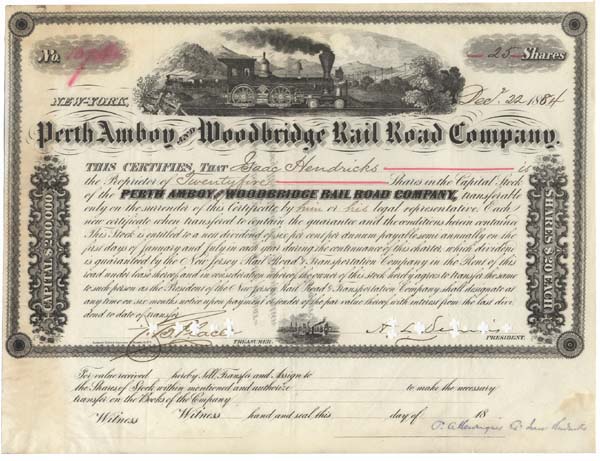 No.
25 Shares
NEW-YORK, Dec. 22 1884
Perth Amboy AND Woodbridge Rail Road Company.
THIS CERTIFIES, THAT Isaac Hendricks is
the Proprietor of Twenty five Shares in the Capital Stock
of the PERTH AMBOY & WOODBRIDGE RAIL ROAD COMPANY, transferable
only on the surrender of this Certificate by him or his legal representative. Each
new certificate when transferred to contain the guarantee and the conditions herein contained
This Stock is entitled to a six per cent dividend per annum payable semi annually on the
first days of January and July in each year during the continuance of this charter, which dividend
is guaranteed by the New Jersey Rail Road & Transportation Company in the Rent of this
road under lease thereof, and in consideration thereof the owner of this stock hereby agrees to transfer the same
to such person as the President of the New Jersey Rail Road & Transportation Company shall designate at
any time on six months notice upon payment or tender of the par value thereof with interest from the last divi
dend to date of transfer.
CAPITAL $200,000
SHARES $20 EACH
TREASURER.
PRESIDENT.
For value received hereby Sell, Transfer and Assign to
the Shares of Stock within mentioned and authorize to make the necessary
transfer on the Books of the Company
Witness hand and seal this day of 18
Witness